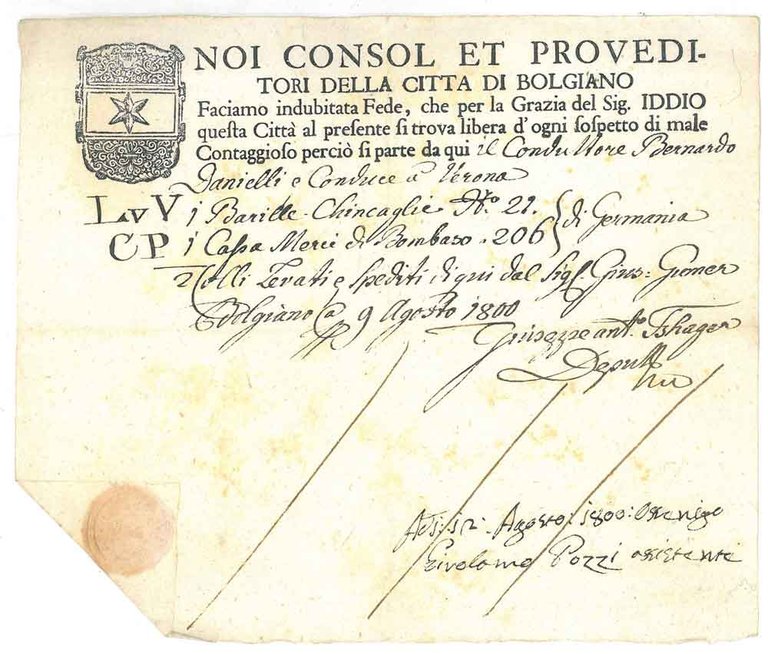 NOI CONSOL ET PROVEDI-
TORI DELLA CITTA DI BOLGIANO
Faciamo indubitata Fede, che per la Grazia del Sig. IDDIO
questa Città al presente si trova libera d'ogni sospetto di male
Contaggioso perciò si parte da qui il Conduttore Bernardo
Danielli e Conduce a Verona
LvV 1 Barille Chincaglie No. 21. di Germania
CP 1 Cassa Merci di Bombaso . 206
2 Colli Levati e Spediti di qui dal Sigr. Gius:
Bolgiano 9 Agosto 1800
Giuseppe ant.o
Deputto
Adi: 12: Agosto: 1800: Ossenigo
Girolamo Pozzi assistente